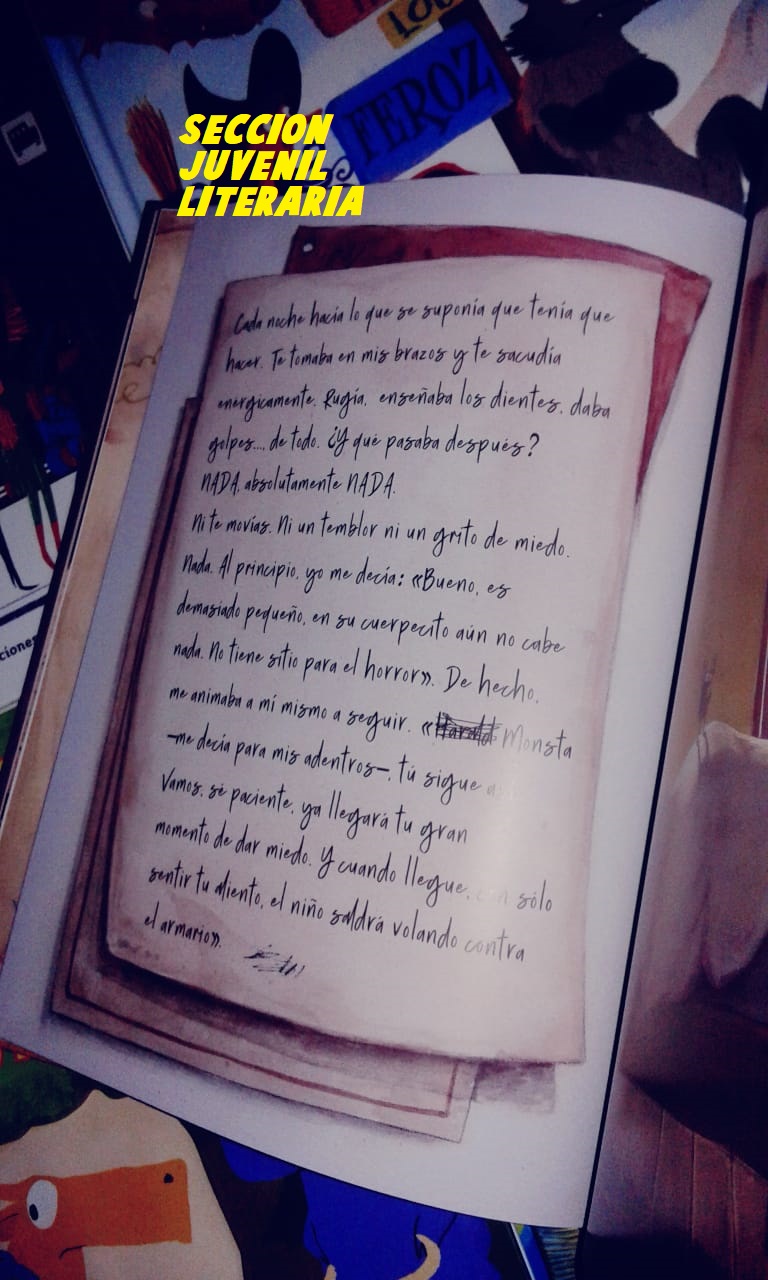 LOB
FEROZ
SECCION
JUVENIL
LITERARIA
Cada noche hacía lo que se suponía que tenía que
hacer. Te tomaba en mis brazos y te sacudía
energicamente. Rugía, enseñaba los dientes, daba
golpes..., de todo. ¿Y qué pasaba después?
NADA, absolutamente NADA.
Ni te movías. Ni un temblor ni un grito de miedo.
Nada. Al principio, yo me decía: «Bueno, es
demasiado pequeño, en su cuerpecito aún no cabe
nada. No tiene sitio para el horror». De hecho,
me animaba a mí mismo a seguir. «Harald Monsta
—me decía para mis adentros—, tú sigue
Vamos, sé paciente, ya llegará tu gran
momento de dar miedo. Y cuando llegue, con sólo
sentir tu aliento, el niño saldrá volando contra
el armario».
ciones